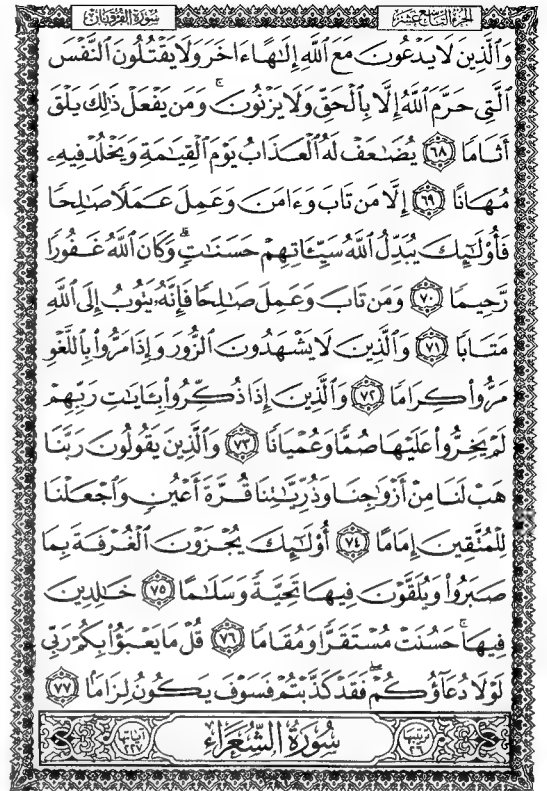 سُورَةُ الفُرْقَانِ
الجزء التاسع عشر
وَٱلَّذِينَ لَا يَدْعُونَ مَعَ ٱللَّهِ إِلَٰهًا ءَاخَرَ وَلَا يَقْتُلُونَ ٱلنَّفْسَ
ٱلَّتِى حَرَّمَ ٱللَّهُ إِلَّا بِٱلْحَقِّ وَلَا يَزْنُونَ ۚ وَمَن يَفْعَلْ ذَٰلِكَ يَلْقَ
أَثَامًا ٦٨ يُضَٰعَفْ لَهُ ٱلْعَذَابُ يَوْمَ ٱلْقِيَٰمَةِ وَيَخْلُدْ فِيهِۦ
مُهَانًا ٦٩ إِلَّا مَن تَابَ وَءَامَنَ وَعَمِلَ عَمَلًا صَٰلِحًا
فَأُو۟لَٰٓئِكَ يُبَدِّلُ ٱللَّهُ سَيِّـَٔاتِهِمْ حَسَنَٰتٍ ۗ وَكَانَ ٱللَّهُ غَفُورًا
رَّحِيمًا ٧٠ وَمَن تَابَ وَعَمِلَ صَٰلِحًا فَإِنَّهُۥ يَتُوبُ إِلَى ٱللَّهِ
مَتَابًا ٧١ وَٱلَّذِينَ لَا يَشْهَدُونَ ٱلزُّورَ وَإِذَا مَرُّوا۟ بِٱللَّغْوِ
مَرُّوا۟ كِرَامًا ٧٢ وَٱلَّذِينَ إِذَا ذُكِّرُوا۟ بِـَٔايَٰتِ رَبِّهِمْ
لَمْ يَخِرُّوا۟ عَلَيْهَا صُمًّا وَعُمْيَانًا ٧٣ وَٱلَّذِينَ يَقُولُونَ رَبَّنَا
هَبْ لَنَا مِنْ أَزْوَٰجِنَا وَذُرِّيَّٰتِنَا قُرَّةَ أَعْيُنٍ وَٱجْعَلْنَا
لِلْمُتَّقِينَ إِمَامًا ٧٤ أُو۟لَٰٓئِكَ يُجْزَوْنَ ٱلْغُرْفَةَ بِمَا
صَبَرُوا۟ وَيُلَقَّوْنَ فِيهَا تَحِيَّةً وَسَلَٰمًا ٧٥ خَٰلِدِينَ
فِيهَا ۚ حَسُنَتْ مُسْتَقَرًّا وَمُقَامًا ٧٦ قُلْ مَا يَعْبَؤُا۟ بِكُمْ رَبِّى
لَوْلَا دُعَآؤُكُمْ ۖ فَقَدْ كَذَّبْتُمْ فَسَوْفَ يَكُونُ لِزَامًا ٧٧
ترتيبها ٢٦
سُورَةُ الشُّعَرَاءِ
آياتها ٢٢٧